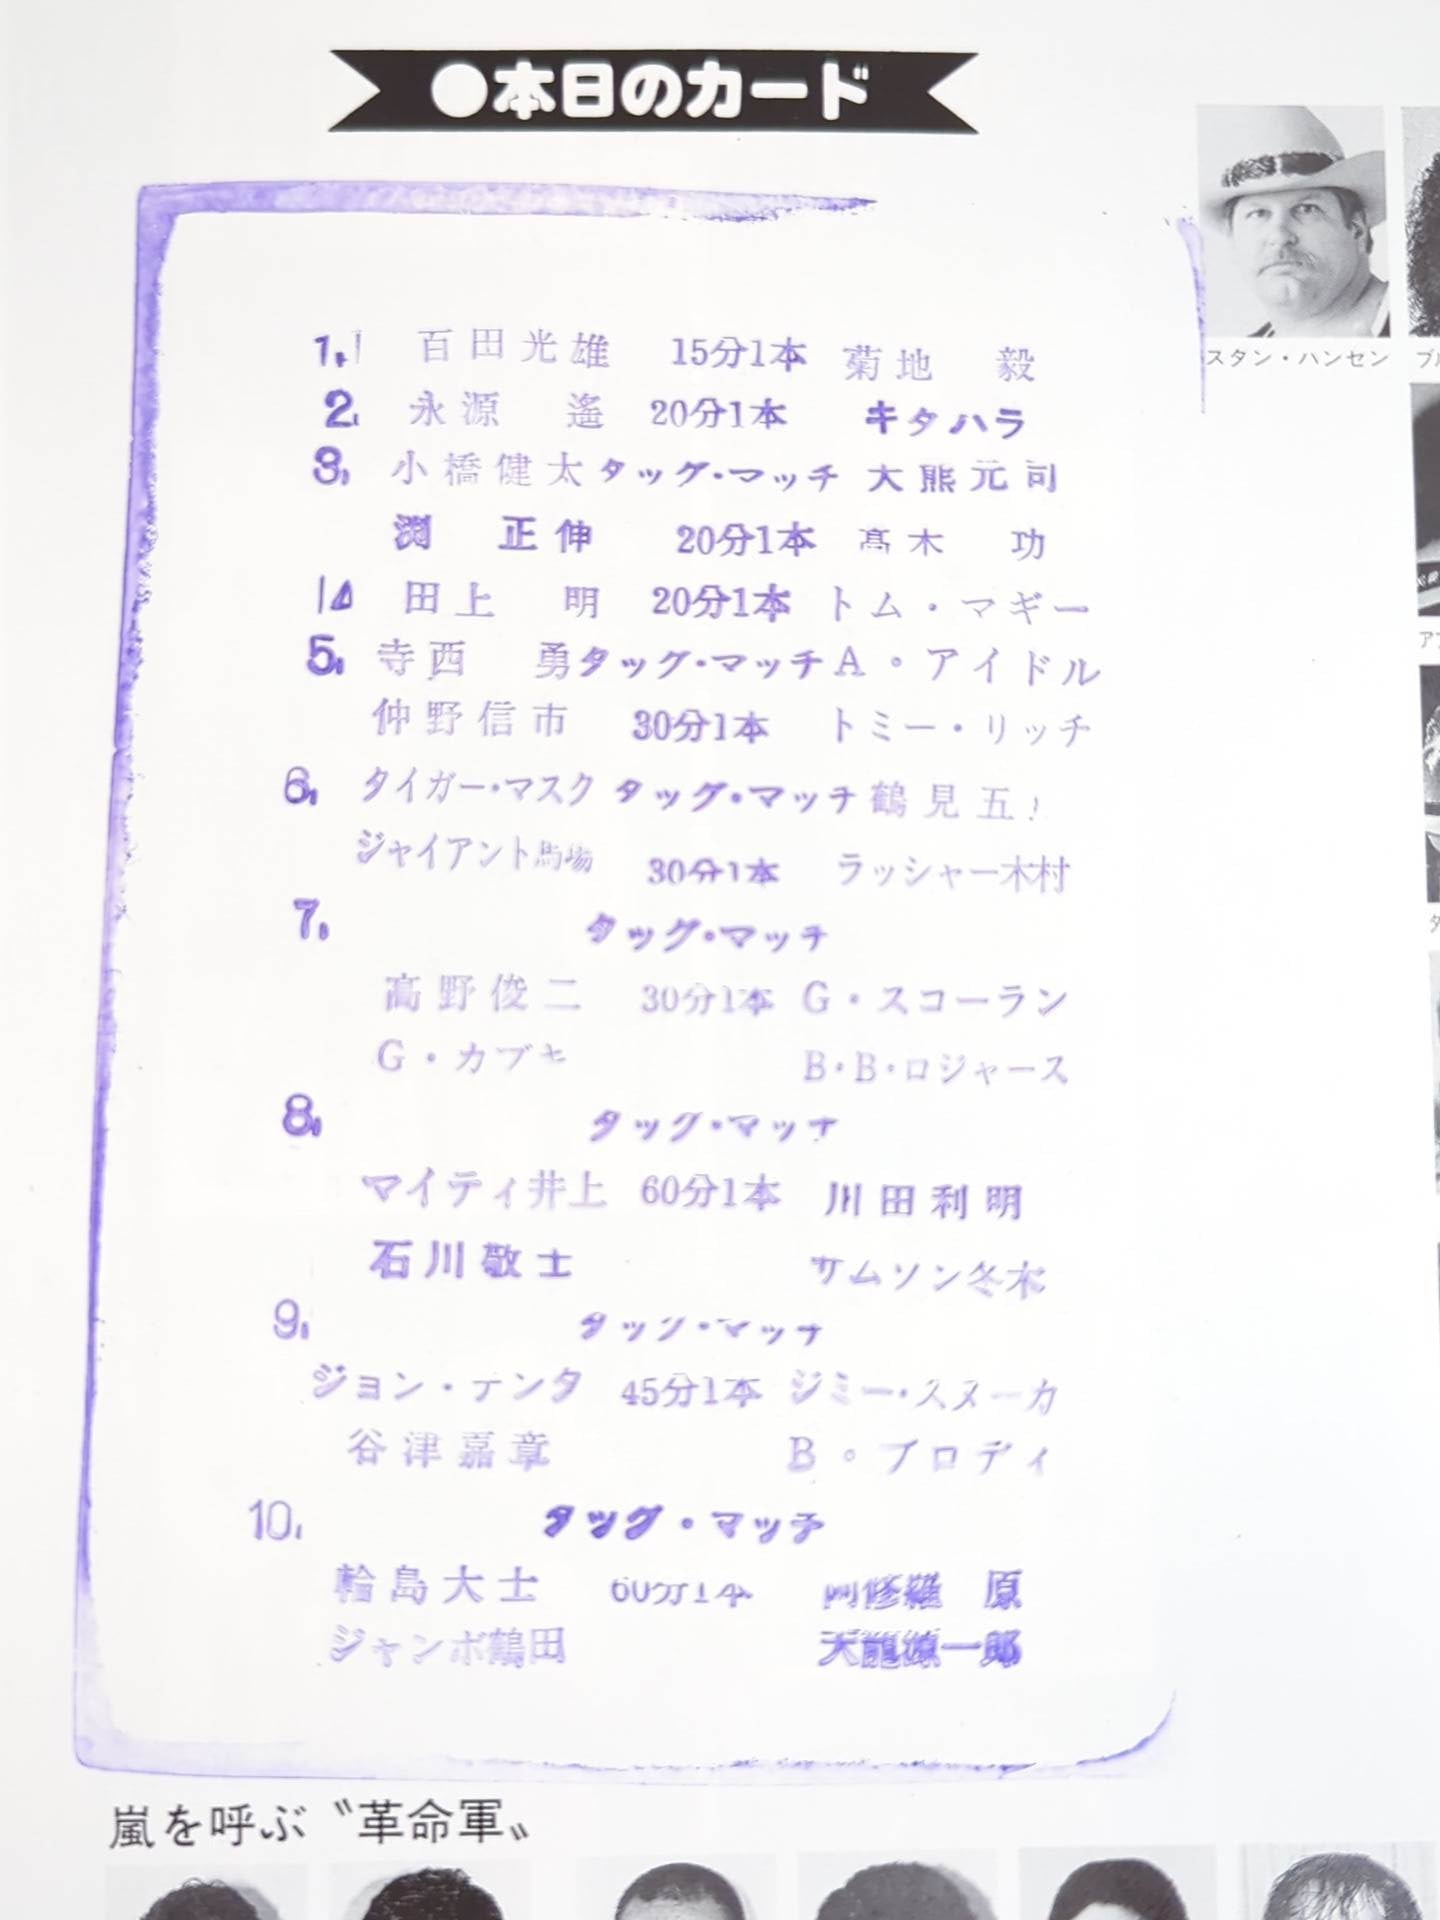 ●本日のカード
スタン・ハンセン
1. 百田光雄 15分1本 菊地 毅
2. 永源 遙 20分1本 キタハラ
3. 小橋健太 タッグ・マッチ 大熊元司
渕 正伸 20分1本 髙木 功
4 田上 明 20分1本 トム・マギー
5. 寺西 勇 タッグ・マッチ A・アイドル
仲野信市 30分1本 トミー・リッチ
6. タイガー・マスク タッグ・マッチ 鶴見五
ジャイアント馬場 30分1本 ラッシャー木村
7. タッグ・マッチ
髙野俊二 30分1本 G・スコーラン
G・カブキ B・B・ロジャース
8. タッグ・マッチ
マイティ井上 60分1本 川田利明
石川敬士 サムソン冬木
9. タッグ・マッチ
ジョン・テンタ 45分1本 ジミー・スヌーカ
谷津嘉章 B・ブロディ
10. タッグ・マッチ
輪島大士 60分1本 阿修羅 原
ジャンボ鶴田 天龍源一郎
嵐を呼ぶ〝革命軍〟